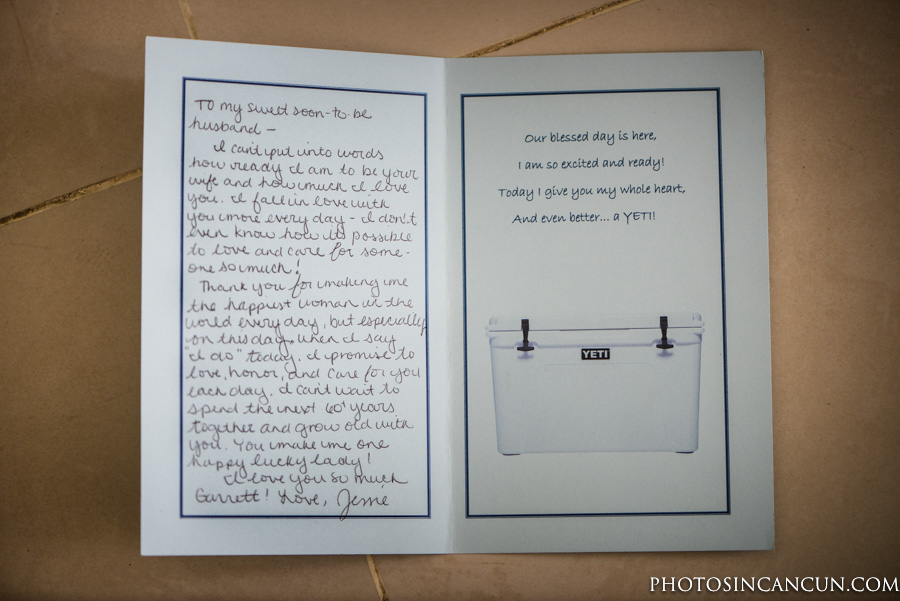 To my sweet soon-to-be
husband -
I can't put into words
how ready I am to be your
wife and how much I love
you. I fall in love with
you more every day - I don't
even know how its possible
to love and care for some-
one so much!
Thank you for making me
the happiest woman in the
world every day, but especially
on this day, when I say
"I do" today. I promise to
love, honor, and care for you
each day. I can't wait to
spend the next 60+ years
together and grow old with
you. You make me one
happy lucky lady!
I love you so much
Garrett! Love, Jessie
Our blessed day is here,
I am so excited and ready!
Today I give you my whole heart,
And even better... a YETI!
YETI
PHOTOSINCANCUN.COM